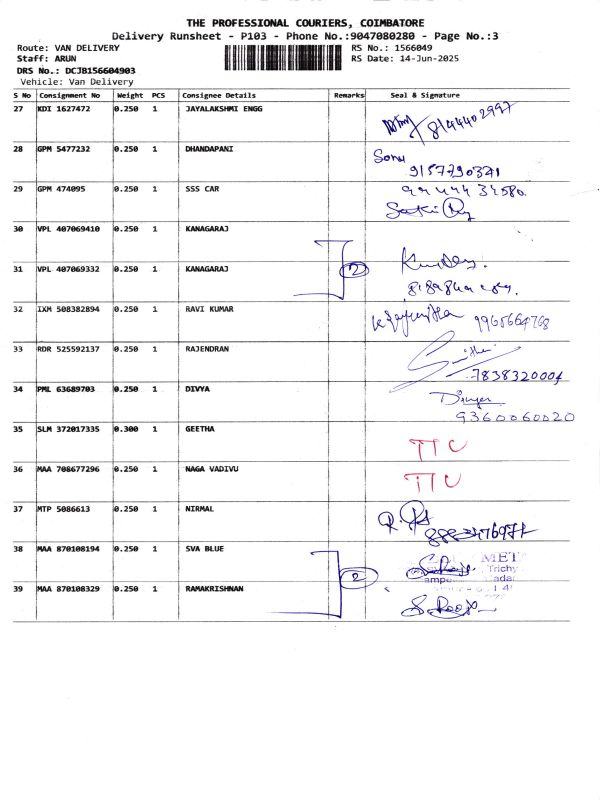 THE PROFESSIONAL COURIERS, COIMBATORE
Delivery Runsheet - P103 - Phone No.:9047080280 - Page No.:3
Route: VAN DELIVERY RS No.: 1566049
Staff: ARUN RS Date: 14-Jun-2025
DRS No.: DCJB156604903
Vehicle: Van Delivery
S No Consignment No Weight PCS Consignee Details Remarks Seal & Signature
27 KDI 1627472 0.250 1 JAYALAKSHMI ENGG
8144402997
28 GPM 5477232 0.250 1 DHANDAPANI Sonu
9157790321
29 GPM 474095 0.250 1 SSS CAR
30 VPL 407069410 0.250 1 KANAGARAJ
31 VPL 407069332 0.250 1 KANAGARAJ 2
32 IXM 508382894 0.250 1 RAVI KUMAR 9965664768
33 RDR 525592137 0.250 1 RAJENDRAN
7838320004
34 PML 63689703 0.250 1 DIVYA
9360060020
35 SLM 372017335 0.300 1 GEETHA TTC
36 MAA 708677296 0.250 1 NAGA VADIVU TTC
37 MTP 5086613 0.250 1 NIRMAL
38 MAA 870108194 0.250 1 SVA BLUE MET
2 Trichy
39 MAA 870108329 0.250 1 RAMAKRISHNAN